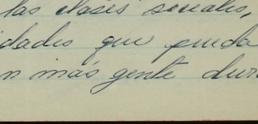 las clases sociales,
dades que pueda
n más gente dur